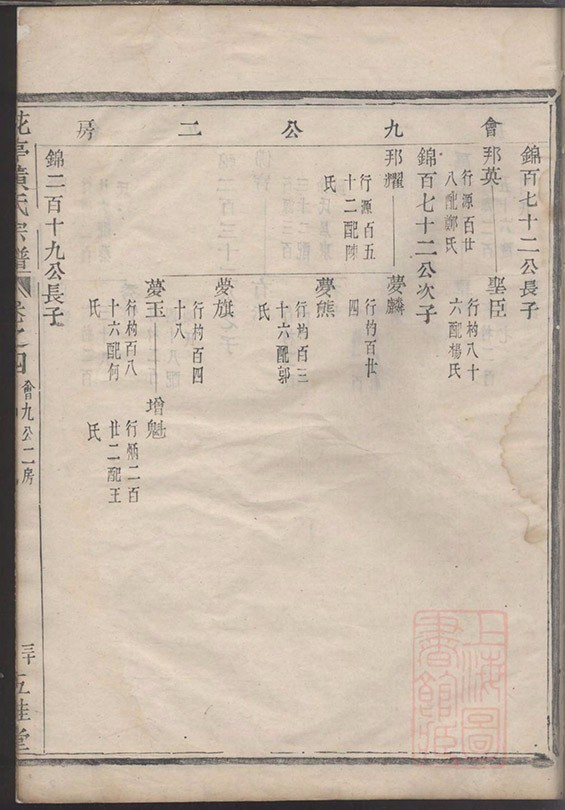 會九公二房
錦百七十二公長子
邦英
行源百廿
八配鄭氏
聖臣
行杓八十
六配楊氏
錦百七十二公次子
邦耀
行源百五
十二配陳
氏
夢麟
行杓百廿
四
夢熊
行杓百三
十六配郭
氏
夢旗
行杓百四
十八
夢玉
行杓百八
十六配何
氏
增魁
行炳二百
廿二配王
氏
錦二百十九公長子
黃氏宗譜
卷之四
會九公二房
三十
五桂堂
上海圖
書館藏